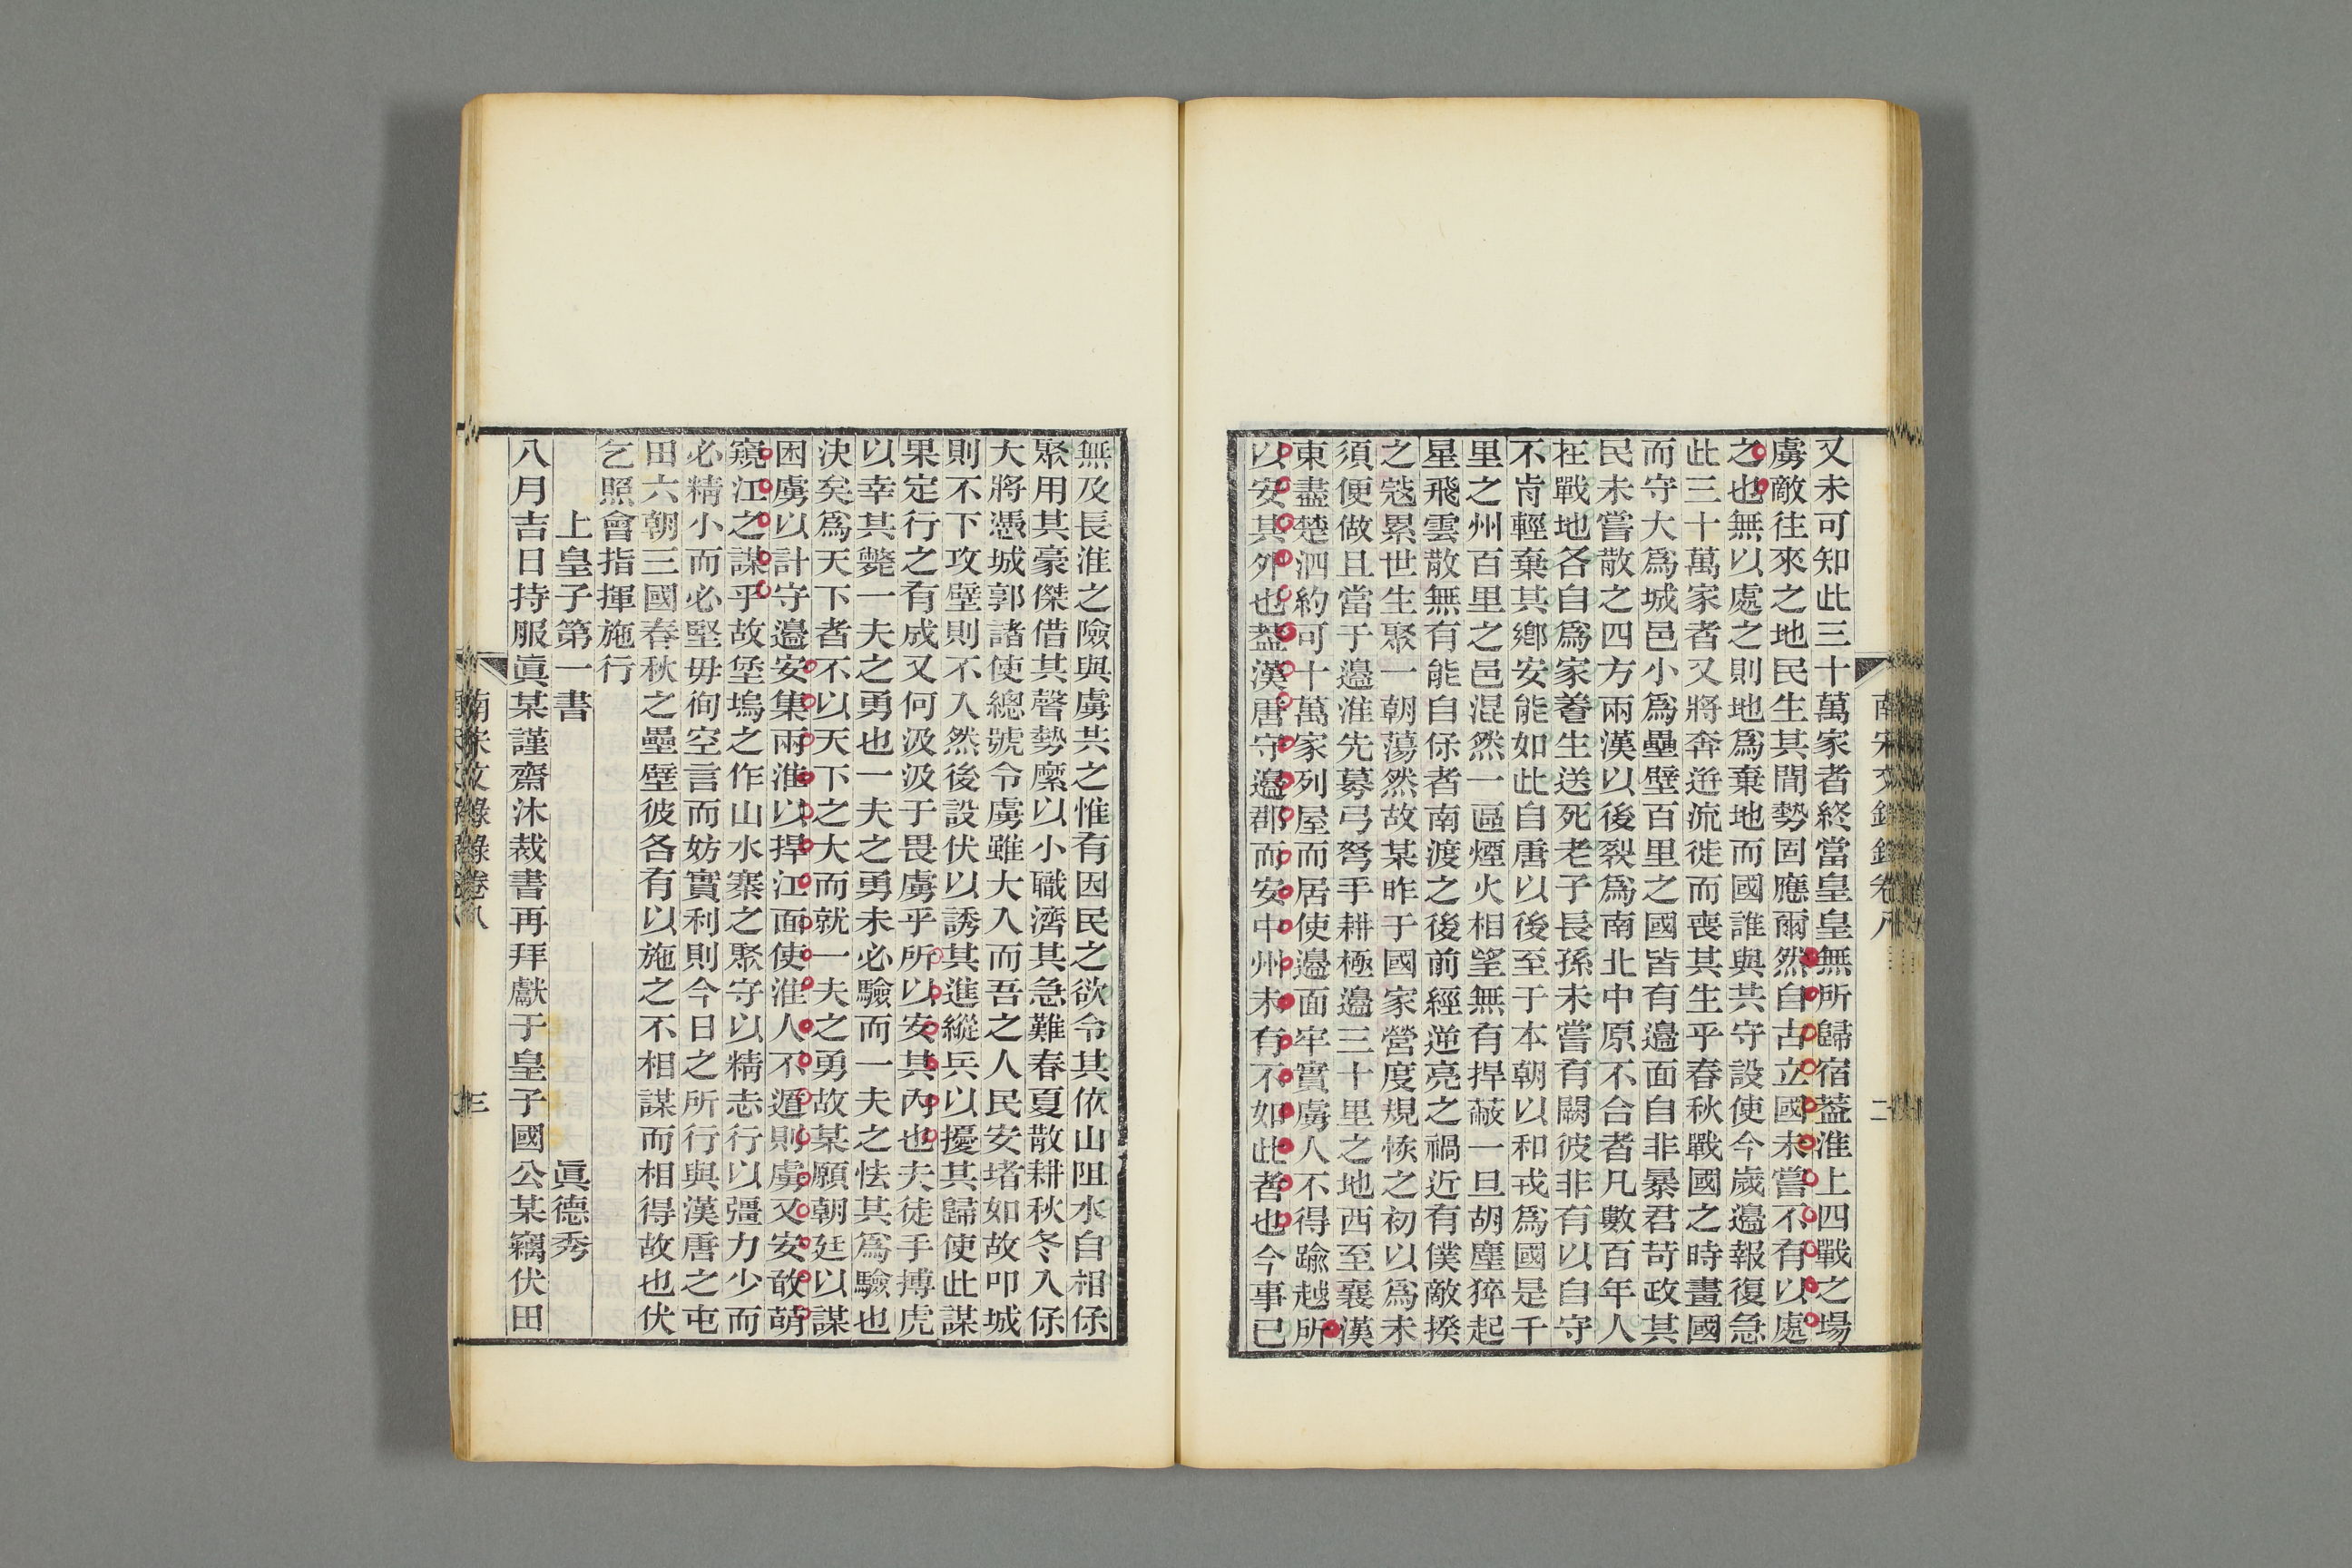 南宋文錄錄卷八
二
又未可知此三十萬家者終當皇皇無所歸宿葢淮上四戰之場
虜敵往來之地民生其間勢固應爾然自古立國未嘗不有以處
之也無以處之則地爲棄地而國誰與共守設使今歲邊報復急
此三十萬家者又將奔迸流徙而喪其生乎春秋戰國之時畫國
而守大爲城邑小爲壘壁百里之國皆有邊面自非暴君苛政其
民未嘗散之四方兩漢以後裂爲南北中原不合者凡數百年人
在戰地各自爲家養生送死老子長孫未嘗有闕彼非有以自守
不肯輕棄其鄉安能如此自唐以後至于本朝以和戎爲國是千
里之州百里之邑混然一區煙火相望無有捍蔽一旦胡塵猝起
星飛雲散無有能自保者南渡之後前經逆亮之禍近有僕敵揆
之宼累世生聚一朝蕩然故某昨于國家營度規恢之初以爲未
須便做且當于邊淮先募弓弩手耕極邊三十里之地西至襄漢
東盡楚泗約可十萬家列屋而居使邊面牢實虜人不得踰越所
以安其外也葢漢唐守邊郡而安中州未有不如此者也今事已
無及長淮之險與虜共之惟有因民之欲令其依山阻水自相保
聚用其豪傑借其聲勢縻以小職濟其急難春夏散耕秋冬入保
大將憑城郭諸使總號令虜雖大入而吾之人民安堵如故叩城
則不下攻壁則不入然後設伏以誘其進縱兵以擾其歸使此謀
果定行之有成又何汲汲于畏虜乎所以安其內也夫徒手搏虎
以幸其斃一夫之勇也一夫之勇未必驗而一夫之怯其爲驗也
決矣爲天下者不以天下之大而就一夫之勇故某願朝廷以謀
困虜以計守邊安集兩淮以捍江面使淮人不遁則虜又安敢萌
窺江之謀乎故堡塢之作山水寨之聚守以精志行以彊力少而
必精小而必堅毋徇空言而妨實利則今日之所行與漢唐之屯
田六朝三國春秋之壘壁彼各有以施之不相謀而相得故也伏
乞照會指揮施行
上皇子第一書 眞德秀
八月吉日持服眞某謹齋沐裁書再拜獻于皇子國公某竊伏田
南宋文錄錄卷八
三